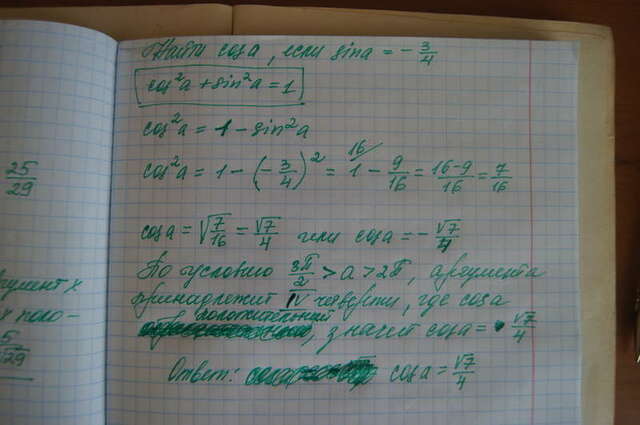 Найти cosa, если sina = - 3/4
cos²a + sin²a = 1
cos²a = 1 - sin²a
cos²a = 1 - (-3/4)² = 1 - 9/16 = (16-9)/16 = 7/16
16/
25/29
cosa = √(7/16) = √7/4 или cosa = - √7/4
По условию 3π/2 > a > 2π, аргумента
принадлежит IV четверти, где cosa
положительный, значит cosa = √7/4
x
5/√29
Ответ: cosa = √7/4